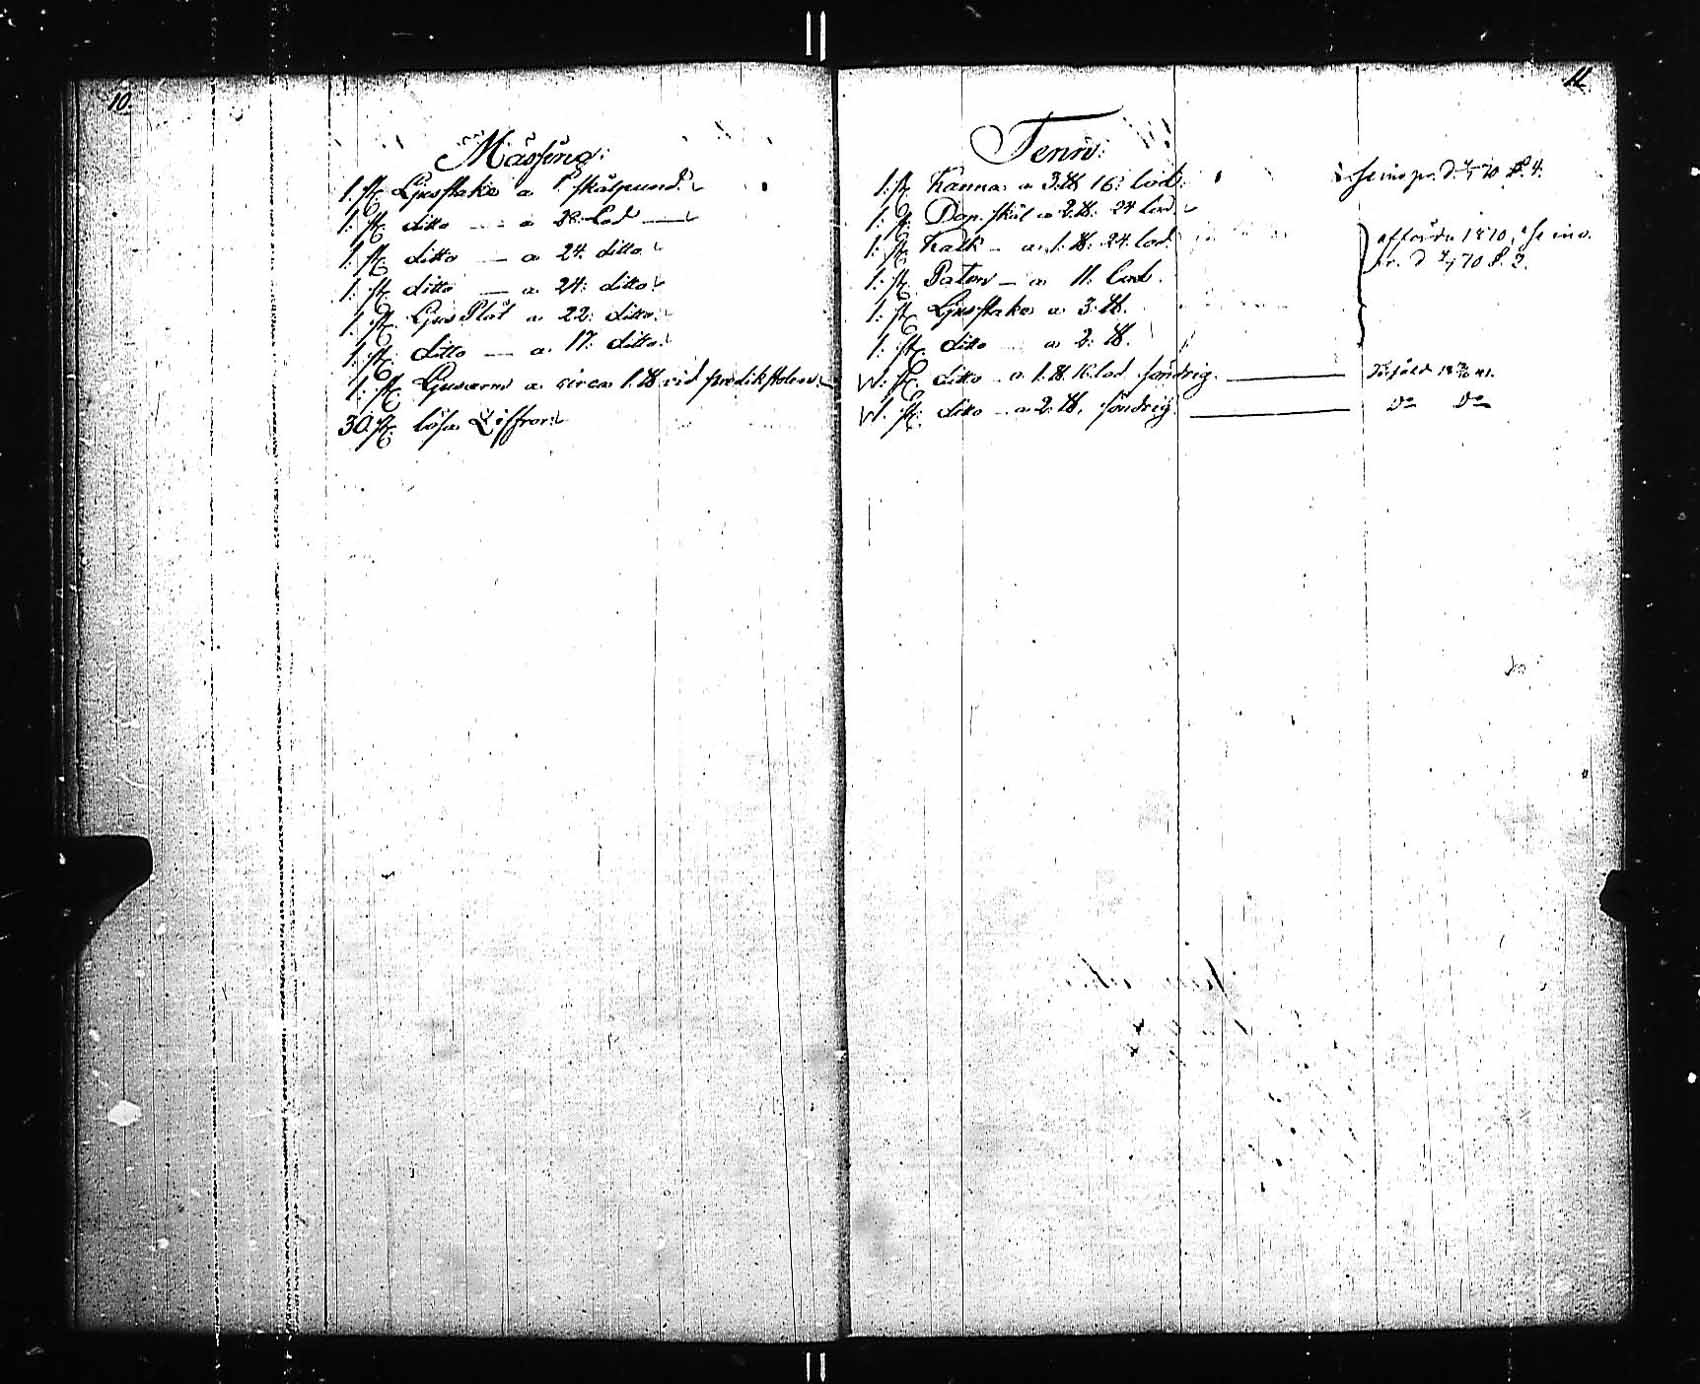 10.
Mässing:
1. st. Ljusstake a 1. skålpund.
1. st. ditto — a 28. Lod —
1. st. ditto — a 24. ditto
1. st. ditto — a 24: ditto
1. st. Ljus Plåt a 22: ditto
1. st. ditto — a 17: ditto
1. st. Ljusarm a circa 1. ℔ vid predikstolen
30. st. lösa Ziffror
11.
Tenn:
1. st. Kanna a 3. ℔ 16: lod. se inv pr. d. 70 P. 4.
1: st. Dop-skål a 2. ℔: 24 lod.
1: st. Kalk — a 1. ℔: 24. lod. afförda 1870, se inv.
1: st. Paten — a 11. Lod. pr. d 70 P. 2.
1: st. Ljusstake a 3. ℔.
1: st. ditto a 2: ℔.
1. st. ditto a 1. ℔. 16. lod söndrig. — Försåld 41.
1. st. ditto — a 2: ℔. söndrig. — Do Do